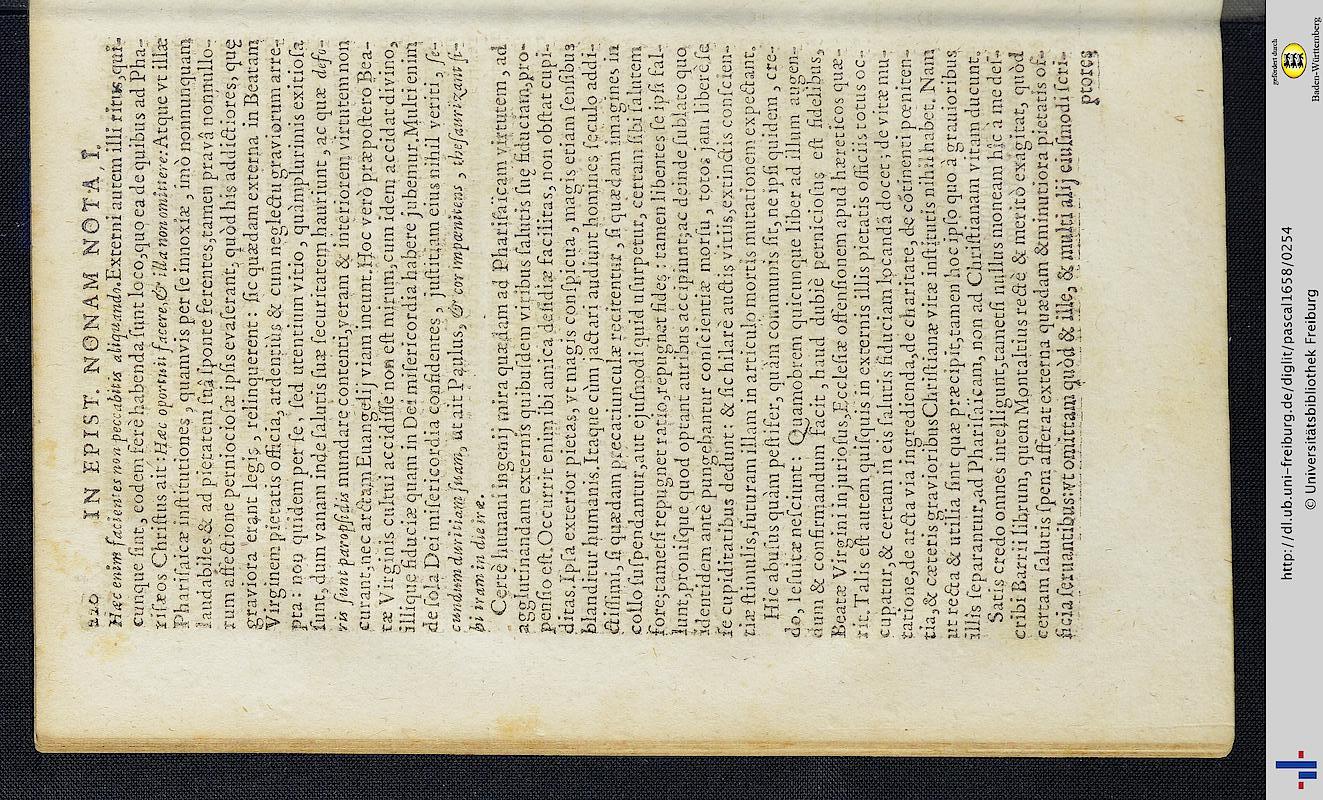 220 IN EPIST. NONAM NOTA, I.
Hæc enim facientes non peccabitis aliquando. Externi autem illi ritus, qui-
cunque sint, eodem ferè habenda sunt loco, quo ea de quibus ad Pha-
risæos Christus ait: Hæc oportuit facere, & illa non omittere. Atque vt illæ
Pharisaicæ institutiones, quamvis per se innoxiæ, imò nonnunquam
laudabiles & ad pietatem suâ sponte ferentes, tamen pravâ nonnullo-
rum affectione perniciosiæ ipsis evaserant, quòd his addictiores, quę
graviora erant legis, relinquerent: sic quædam externa in Beatam
Virginem pietatis officia, ardentiùs & cum neglectu graviorum arre-
pta: non quidem per se, sed utentium vitio, quàmplurimis exitiosa
sunt, dum vanam inde salutis suæ securitatem hauriunt, ac quæ defo-
ris sunt paropsidis mundare contenti, veram & interiorem virtutem non
curant, nec arctam Euangelij viam ineunt. Hoc verò præpostero Bea-
tæ Virginis cultui accidisse non est mirum, cum idem accidat divino,
illique fiduciæ quam in Dei misericordia habere jubemur. Multi enim
de sola Dei misericordia confidentes, justitiam eius nihil veriti, se-
cundum duritiam suam, ut ait Paulus, & cor impœnitens, thesaurizant si-
bi iram in die iræ.
Certè humani ingenij mira quædam ad Pharisaicam virtutem, ad
agglutinandam externis quibusdem viribus salutis suę fiduciam, pro-
pensio est. Occurrit enim ibi amica desidiæ facilitas, non obstat cupi-
ditas. Ipsa exterior pietas, vt magis conspicua, magis etiam sensibus
blanditur humanis. Itaque cùm jactari audiunt homines sęculo addi-
ctissimi, si quædam precatiunculæ recitentur, si quædam imagines in
collo suspendantur, aut ejusmodi quid usurpetur, certam sibi salutem
fore; tametsi repugnet ratio, repugnet fides; tamen libentes se ipsi fal-
lunt, pronisque quod optant auribus accipiunt; ac deinde sublato quo
identidem antè pungebantur conscientiæ morsu, totos jam liberè se
se cupiditatibus dedunt: & sic hilarè auctis vitiis, extinctis conscien-
tiæ stimulis, futuram illam in articulo mortis mutationem expectant.
Hic abusus quàm pestifer, quàm communis sit, ne ipsi quidem, cre-
do, Iesuitæ nesciunt: Quamobrem quicumque liber ad illum augen-
dum & confirmandum facit, haud dubiè perniciosus est fidelibus,
Beatæ Virgini injuriosus, Ecclesiæ offensionem apud hæreticos quæ-
rit. Talis est autem quisquis in externis illis pietatis officiis totus oc-
cupatur, & certam in eis salutis fiduciam locandā docet; de vitæ mu-
tatione, de arcta via ingredienda, de charitate, de cōtinenti pœniten-
tia, & cæteris gravioribus Christianæ vitæ institutis nihil habet. Nam
ut recta & utilia sint quæ præcipit, tamen hoc ipso quo à gravioribus
illis separantur, ad Pharisaicam, non ad Christianam vitam ducunt.
Satis credo omnes intelligunt, tametsi nullus moneam hîc à me des-
cribi Barrii librum, quem Montaltius rectè & meritò exagitat, quòd
certam salutis spem afferat externa quædam & minutiora pietatis of-
ficia servantibus: vt omittam quòd & ille, & multi alij ejusmodi scri-
ptores
gefördert durch
Baden-Württemberg
http://dl.ub.uni-freiburg.de/diglit/pascal1658/0254
© Universitätsbibliothek Freiburg